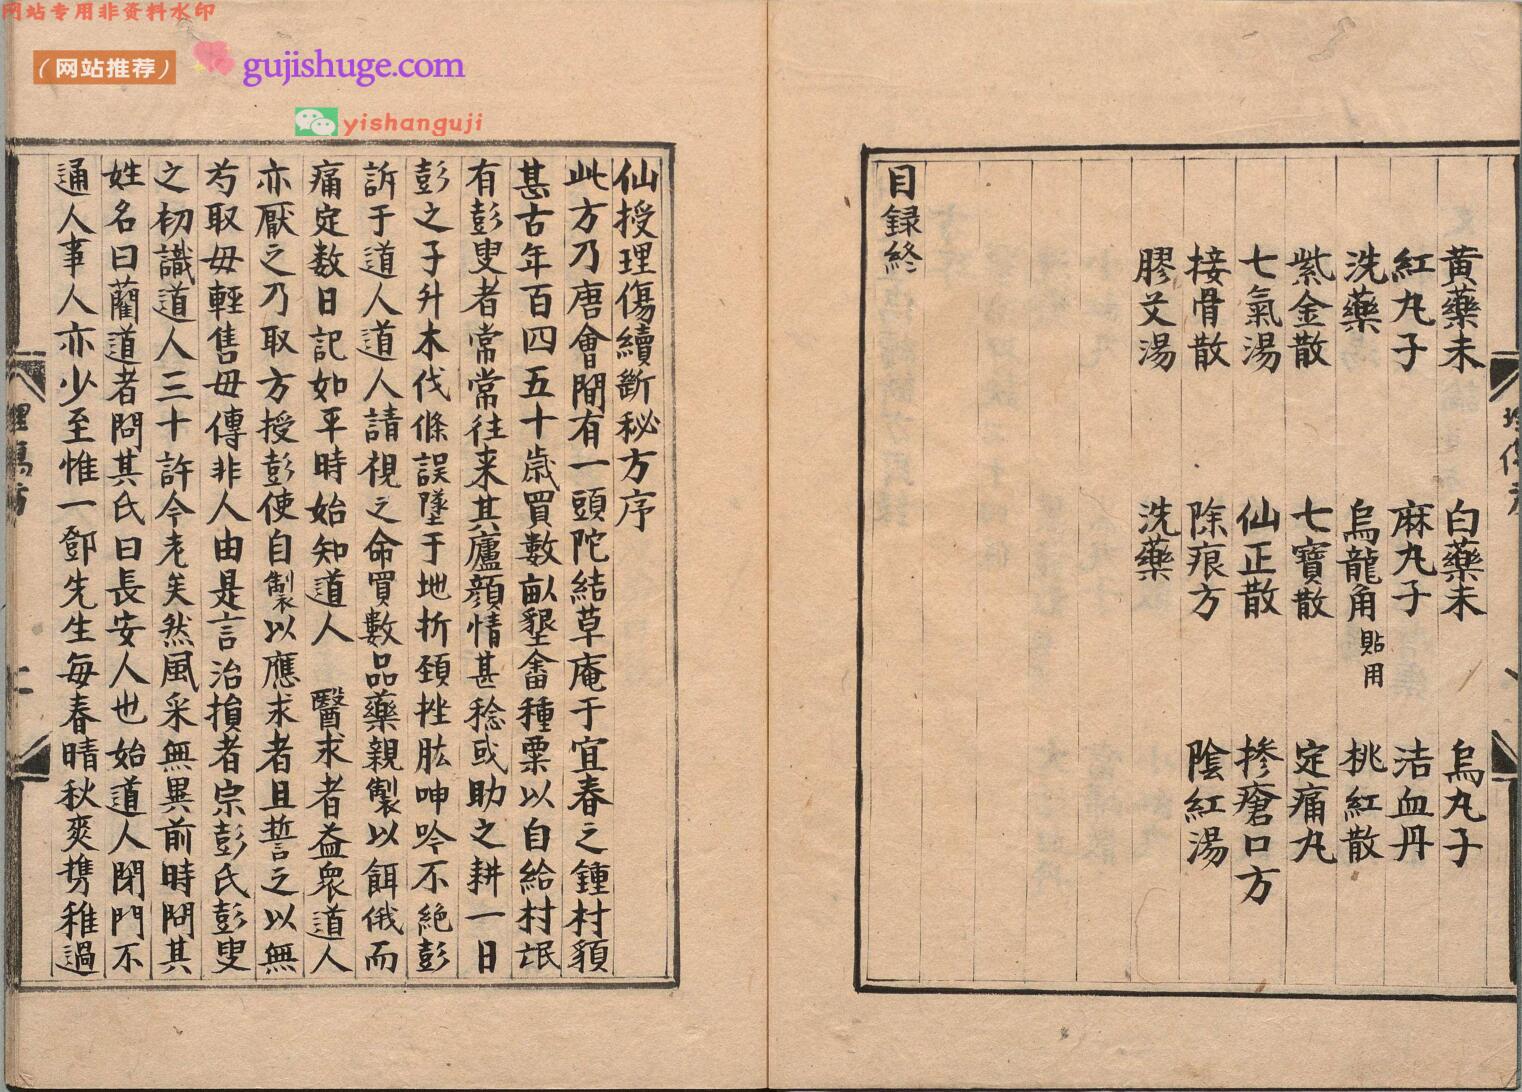 网站专用非资料水印
（网站推荐）
gujishuge.com
yishanguji
黃藥末 白藥末 烏丸子
紅丸子 麻丸子 活血丹
洗藥 烏龍角貼用 桃紅散
紫金散 七寶散 定痛丸
七氣湯 仙正散 摻瘡口方
接骨散 除痕方 陰紅湯
膠艾湯 洗藥
目録終
仙授理傷續斷秘方序
此方乃唐會間有一頭陀結草庵于宜春之鍾村貌
甚古年百四五十歳買數畝墾畬種粟以自給村氓
有彭叟者常常往来其廬顔情甚稔或助之耕一日
彭之子升木伐條誤墜于地折頚挫肱呻吟不絶彭
訴于道人道人請視之命買數品藥親製以餌俄而
痛定数日記如平時始知道人 醫求者益衆道人
亦厭之乃取方授彭使自製以應求者且誓之以無
苟取毋輕售毋傳非人由是言治損者宗彭氏彭叟
之初識道人三十許今老矣然風采無異前時問其
姓名曰藺道者問其氏曰長安人也始道人閉門不
通人事人亦少至惟一鄧先生每春晴秋爽携稚過
理傷方